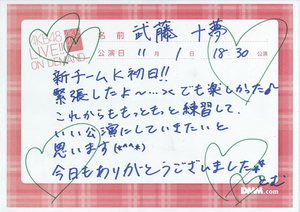 AKB48
LIVE!!
ON DEMAND
名前 武藤 十夢
公演日 11月1日 18:30公演
新チームK初日!!
緊張したよ〜…>< でも楽しかった♪
これからももっともっと練習して、
いい公演にしていきたいと
思います(*^^*)
今日もありがとうございました**
とむ
DMM.com